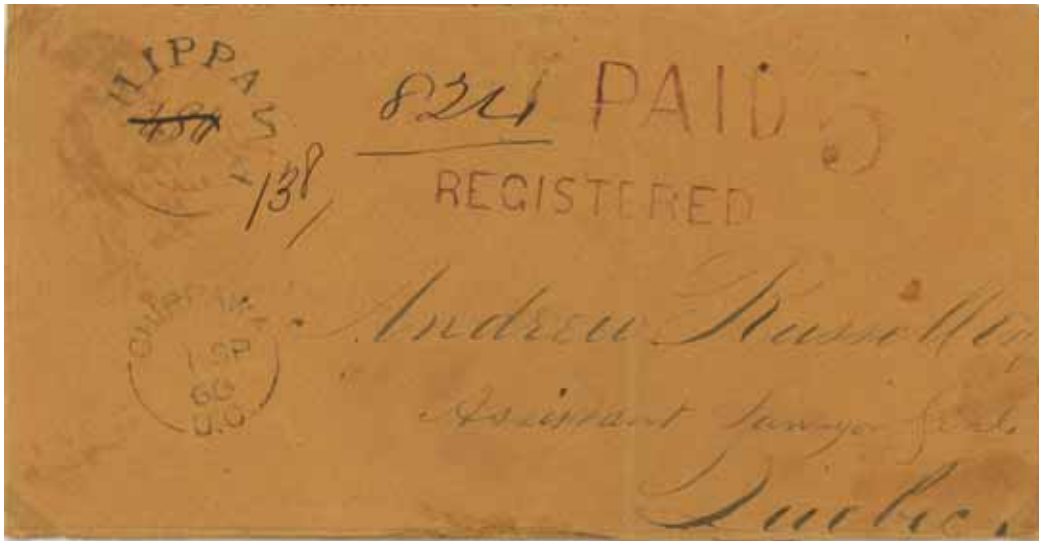 HIPPAW
484
138
824
PAID 5
REGISTERED
CHIPPAWA
1 SP
60
U.C
Andrew Russell Esq
Assistant Surveyor Genl.
Quebec.